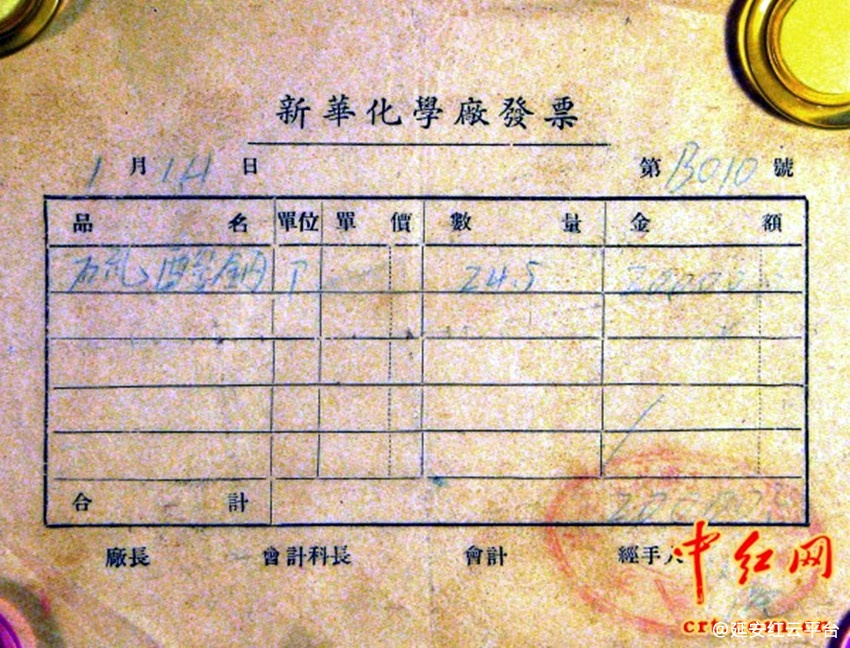 新華化學廠發票
1 月 14 日 第 B010 號
品名 單位 單價 數量 金額
硫酸鈉 P 24.5 20000
合計
廠長 會計科長 會計 經手人
中红网
crt.com.cn
@延安红云平台